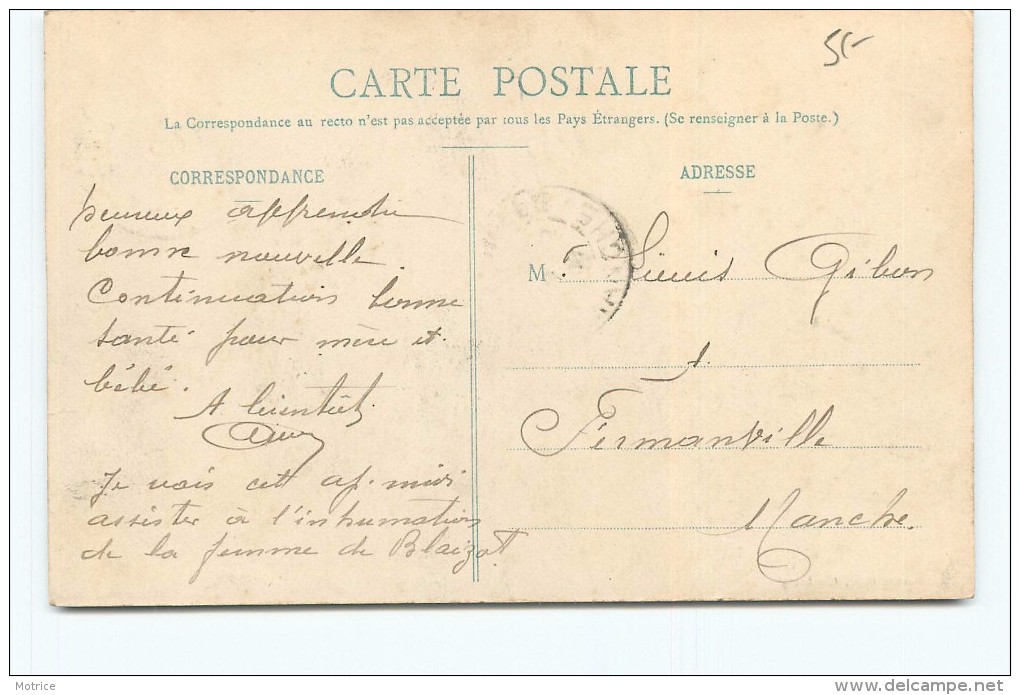 55-
CARTE POSTALE
La Correspondance au recto n'est pas acceptée par tous les Pays Étrangers. (Se renseigner à la Poste.)
CORRESPONDANCE
ADRESSE
heureux apprendre
bonne nouvelle
Continuation bonne
santé pour mère et
bébé.
A bientôt
Je vais cet ap. midi
assister à l'inhumation
de la femme de Blaizot
M. Gibon
à
Fermanville
Manche.
Motrice
delcampe.net